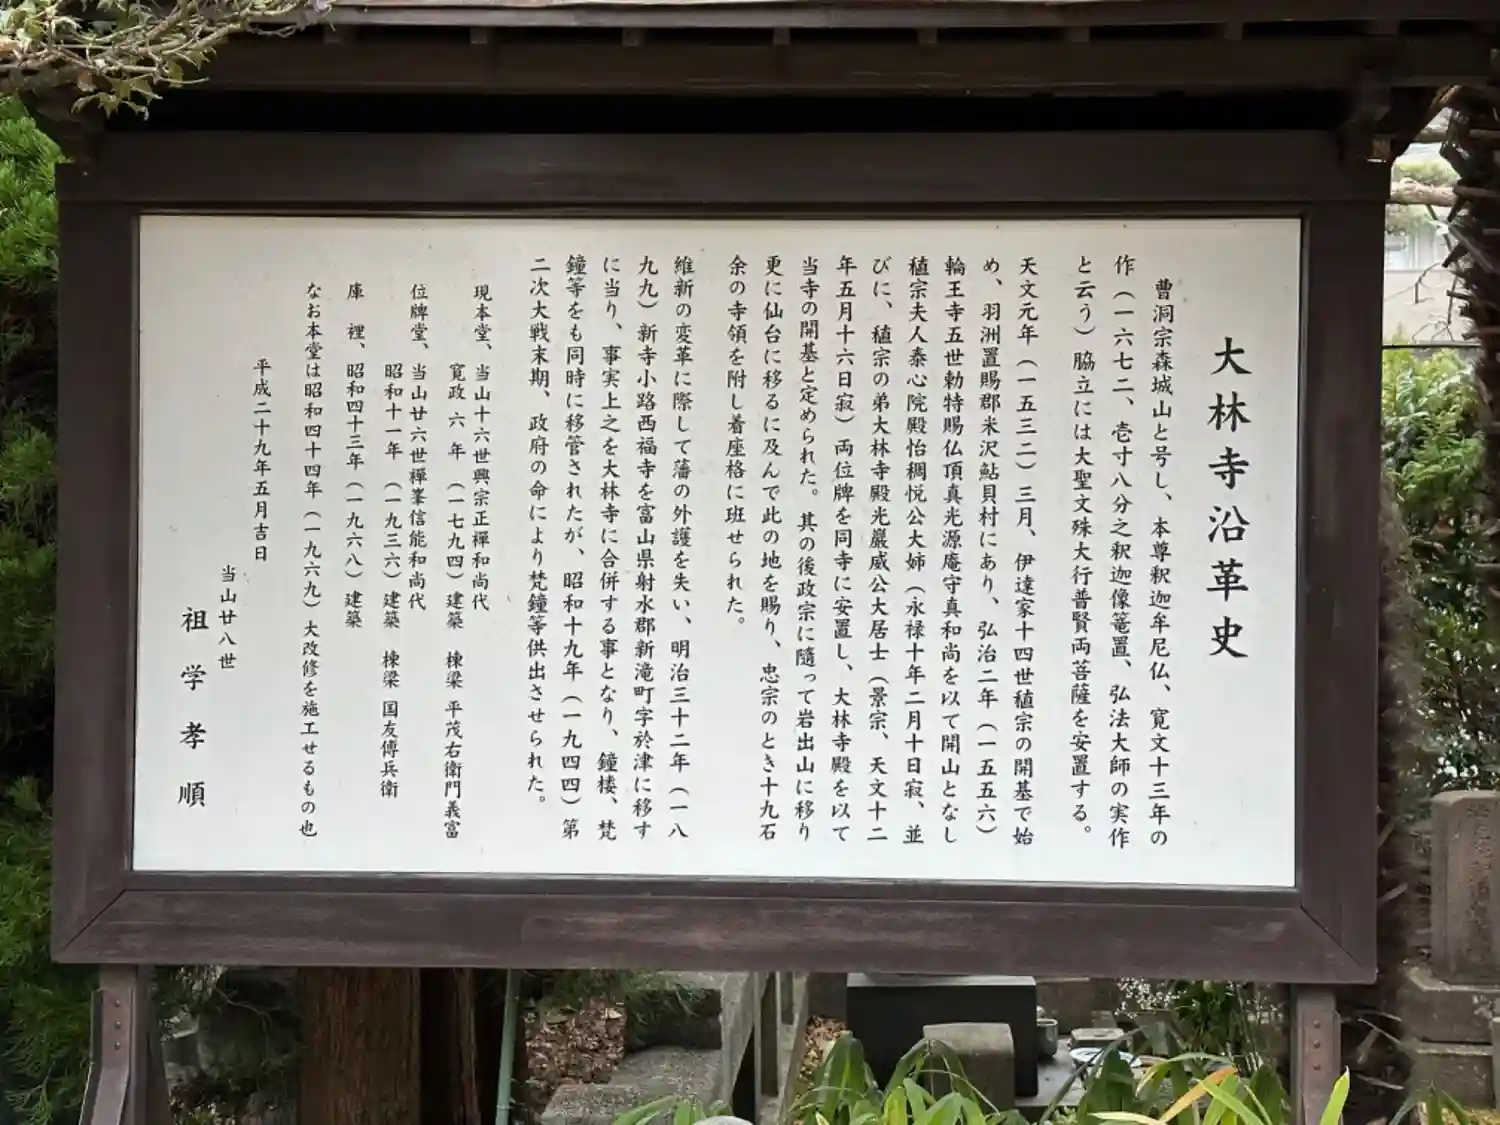 大林寺沿革史
曹洞宗森城山と号し、本尊釈迦牟尼仏、寛文十三年の
作（一六七二、壱寸八分之釈迦像篭置、弘法大師の実作
と云う）脇立には大聖文殊大行普賢両菩薩を安置する。
天文元年（一五三二）三月、伊達家十四世稙宗の開基で始
め、羽洲置賜郡米沢鮎貝村にあり、弘治二年（一五五六）
輪王寺五世勅特賜仏頂真光源庵守真和尚を以て開山となし
稙宗夫人泰心院殿怡稠悦公大姉（永禄十年二月十日寂、並
びに、稙宗の弟大林寺殿光巖威公大居士（景宗、天文十二
年五月十六日寂）両位牌を同寺に安置し、大林寺殿を以て
当寺の開基と定められた。其の後政宗に随って岩出山に移り
更に仙台に移るに及んで此の地を賜り、忠宗のとき十九石
余の寺領を附し着座格に班せられた。
維新の変革に際して藩の外護を失い、明治三十二年（一八
九九）新寺小路西福寺を富山県射水郡新滝町字於津に移す
に当り、事実上之を大林寺に合併する事となり、鐘楼、梵
鐘等をも同時に移管されたが、昭和十九年（一九四四）第
二次大戦末期、政府の命により梵鐘等供出させられた。
現本堂、当山十六世興宗正禪和尚代
寛政六年（一七九四）建築 棟梁 平茂右衛門義富
位牌堂、当山廿六世禪峯信能和尚代
昭和十一年（一九三六）建築 棟梁 国友傳兵衛
庫裡、昭和四十三年（一九六八）建築
なお本堂は昭和四十四年（一九六九）大改修を施工せるもの也
平成二十九年五月吉日
当山廿八世
祖学孝順